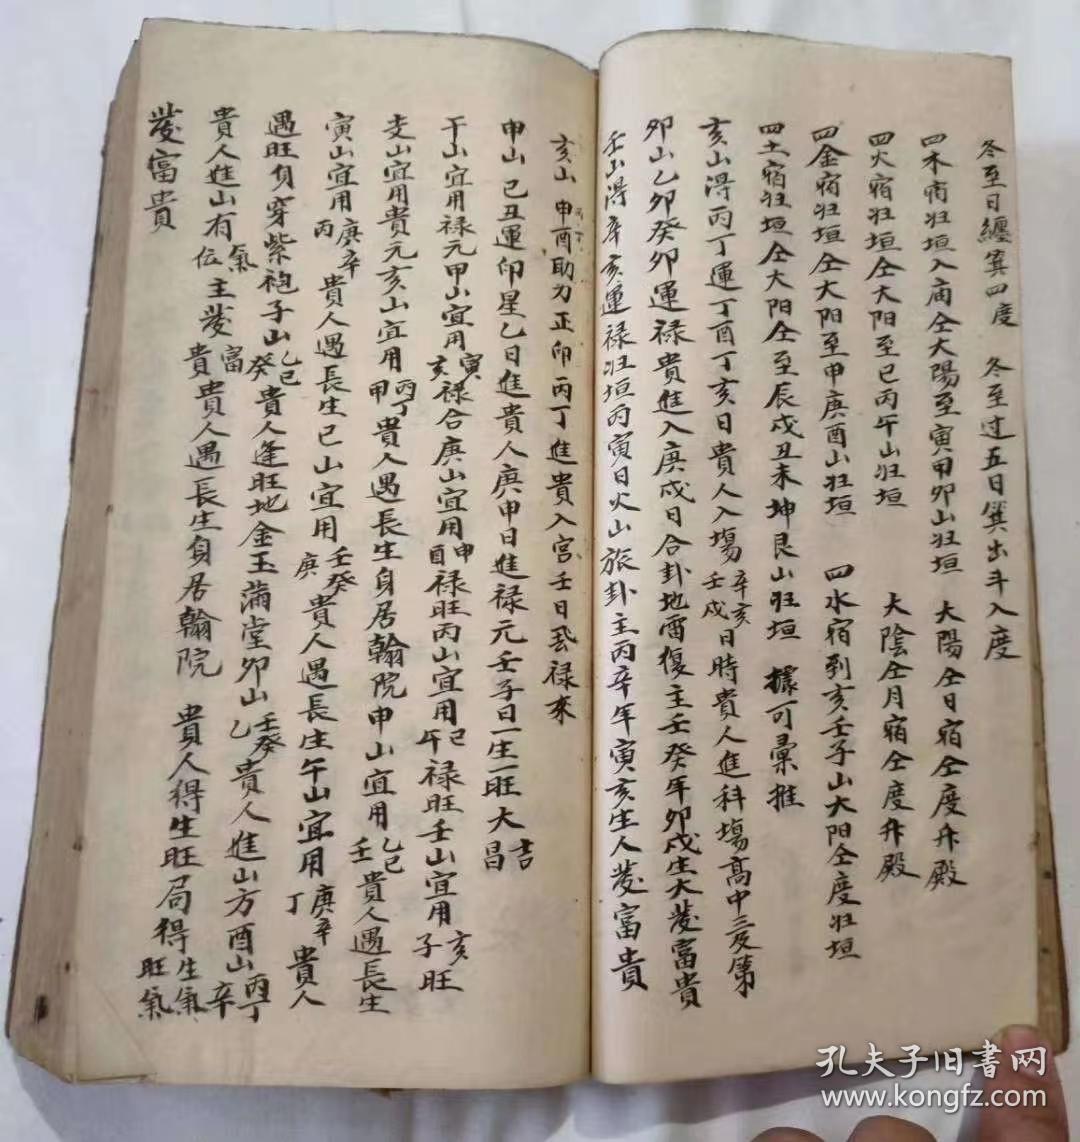 冬至日纏箕四度　冬至过五日箕出斗入度
四木宿归垣入庙仝大陽至寅甲卯山归垣　大陽仝日宿仝度升殿
四火宿归垣仝大阳至巳丙午山归垣　大陰仝月宿仝度升殿
四金宿归垣仝大阳至申庚酉山归垣　四水宿到亥壬子山大阳仝度归垣
四土宿归垣仝大阳仝至辰戍丑未坤艮山归垣　據可彙推
亥山淂丙丁運丁酉丁亥日貴人入塲辛亥壬戍日時貴人進科塲高中三及第
卯山乙卯癸卯運禄貴進入庚戍日合卦地雷復主壬癸年卯戍生大發富貴
壬山淂辛亥運禄归垣丙寅日火山旅卦主丙辛年寅亥生人發富貴
亥山　申酉助力正印丙丁進貴入宮壬日禄來
申山己丑運印星乙日進貴人庚申日進禄元壬子日一生一旺大吉昌
干山宜用禄元甲山宜用寅亥禄合庚山宜用申酉禄旺丙山宜用巳午禄旺壬山宜用亥子旺
支山宜用貴元亥山宜用丙丁甲貴人遇長生身居翰院申山宜用乙己壬貴人遇長生
寅山宜用庚辛丙貴人遇長生巳山宜用壬癸庚貴人遇長生午山宜用庚辛丁貴人
遇旺身穿紫袍子山乙己癸貴人逢旺地金玉滿堂卯山壬癸乙貴人進山方酉山丙丁辛
貴人進山有氣位主發富貴貴人遇長生身居翰院　貴人得生旺局得生氣旺氣
發富貴
孔夫子旧书网
www.kongfz.com